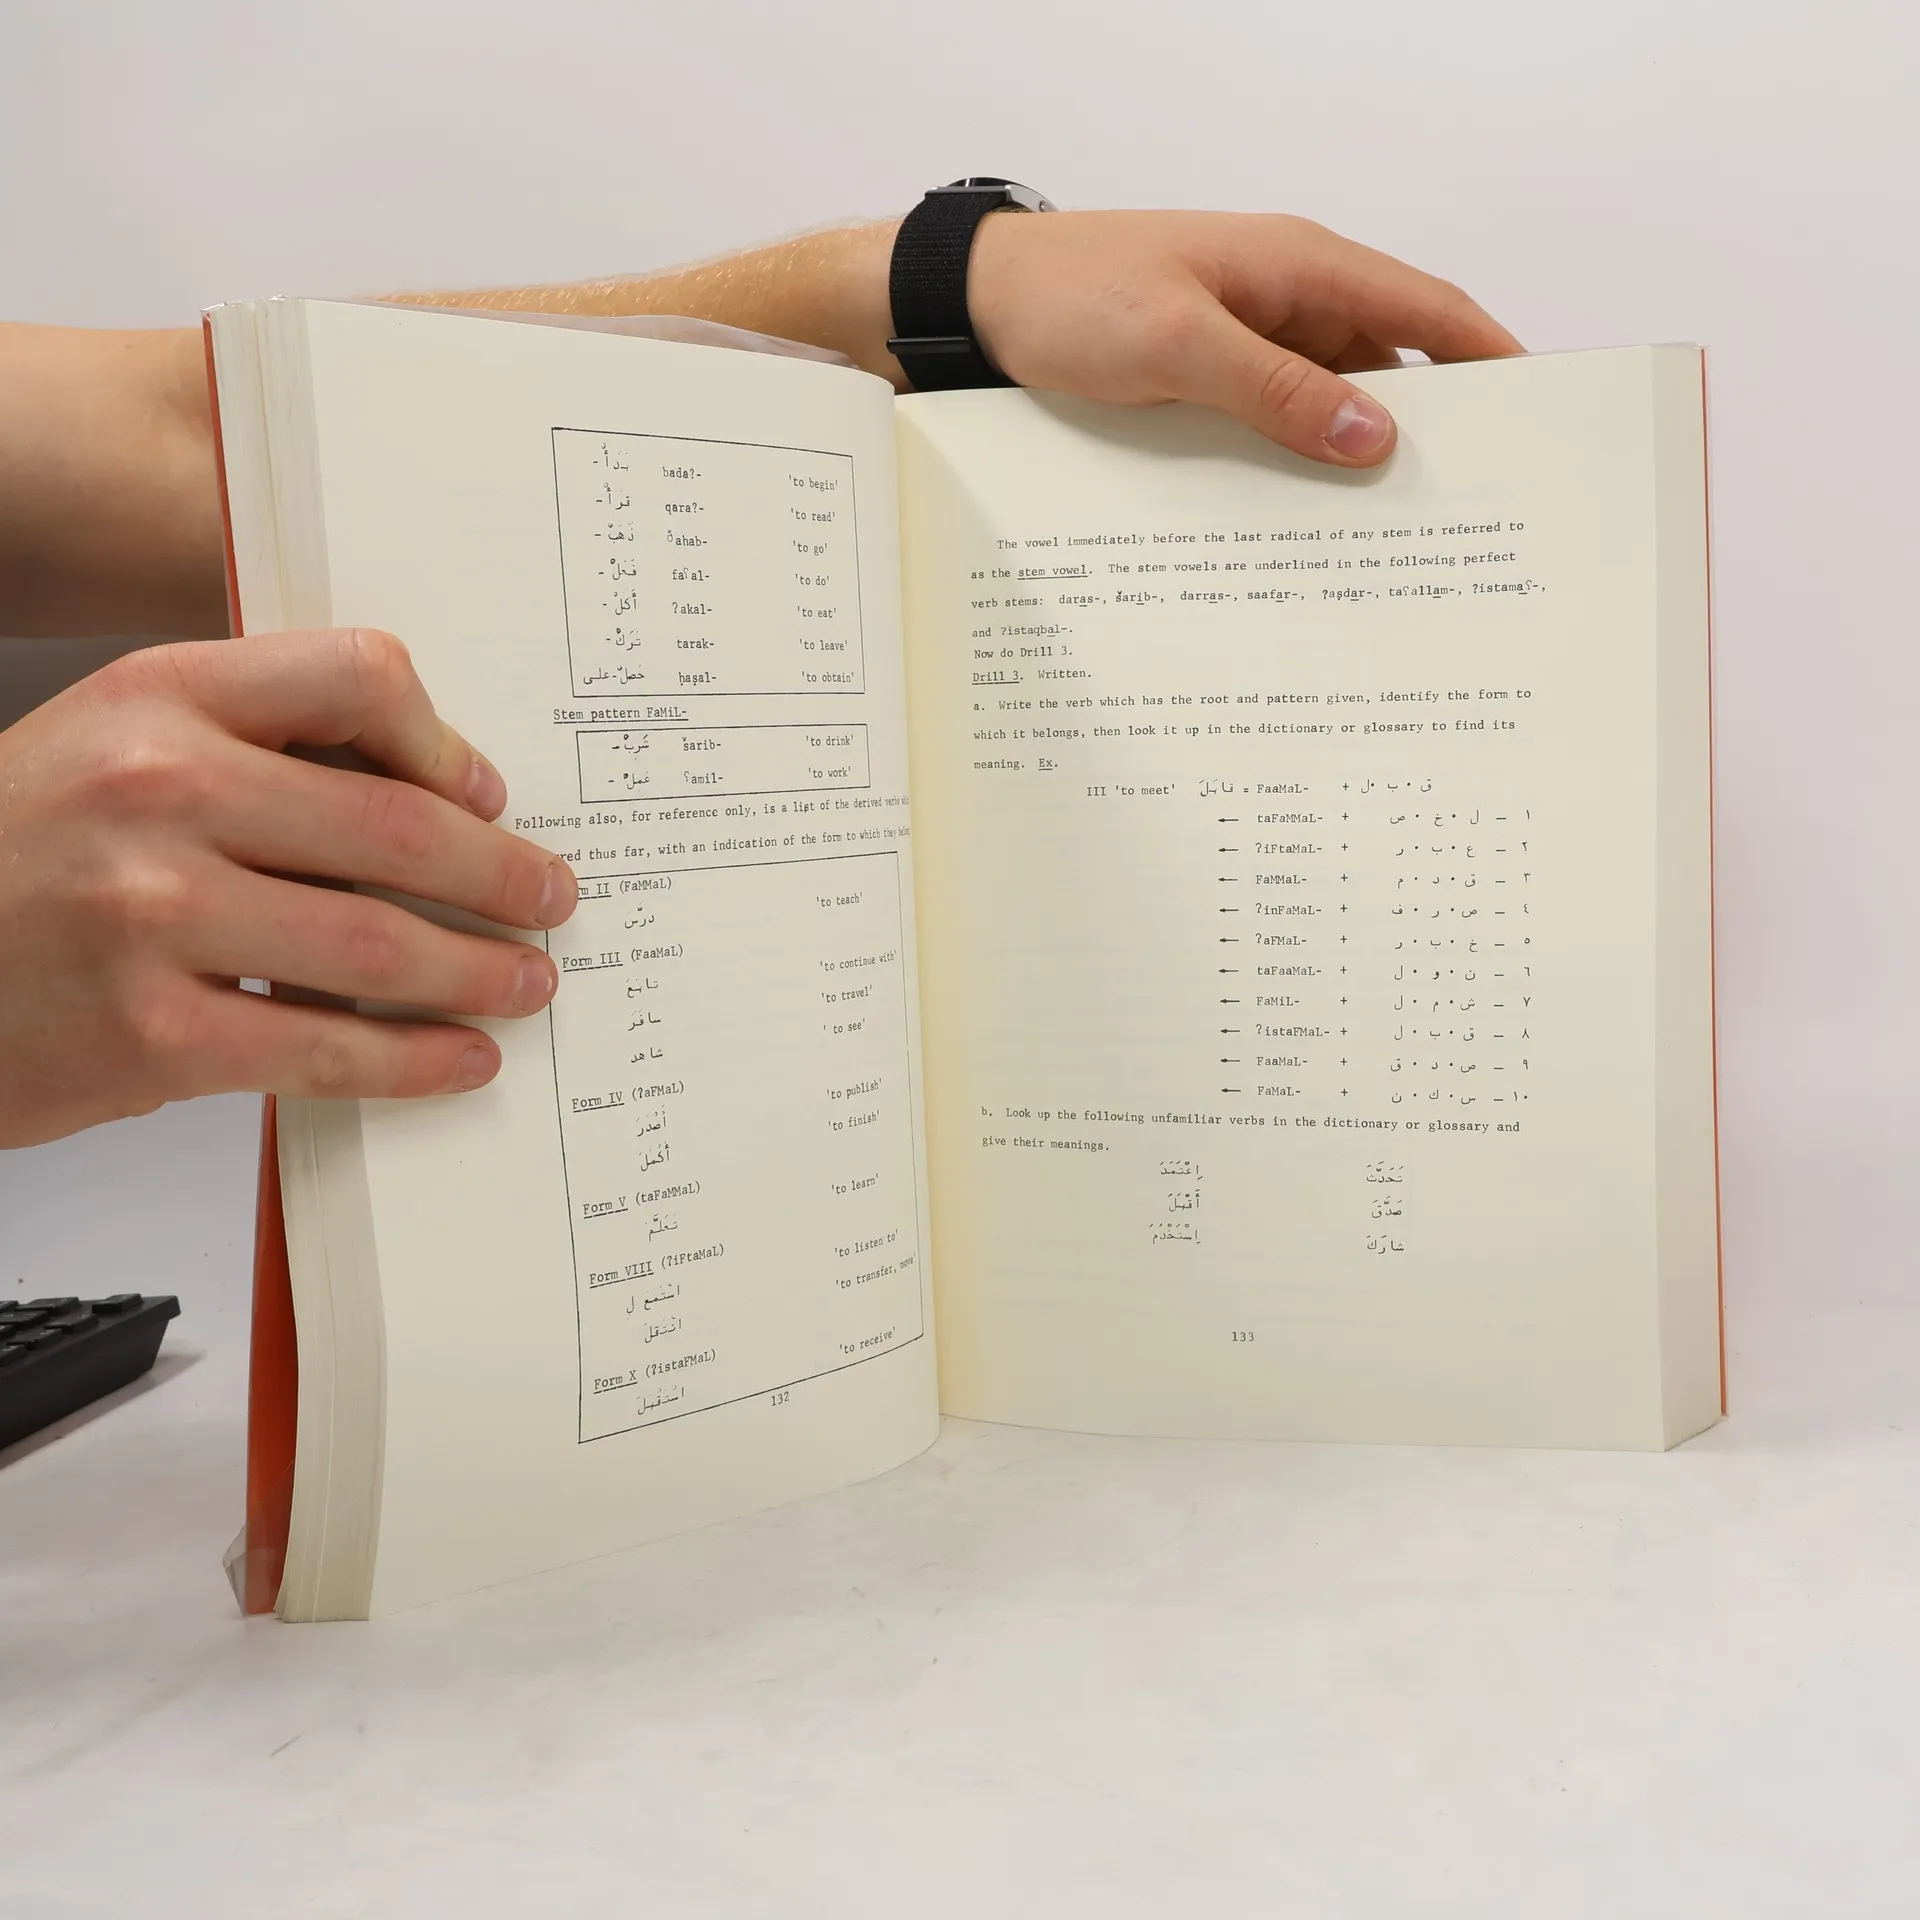 بَدَأْ - bada?- 'to begin'
قرأْ - qara?- 'to read'
ذَهَبْ - ðahab- 'to go'
فَعَلْ - faʕal- 'to do'
أَكَلْ - ?akal- 'to eat'
تَرَكْ - tarak- 'to leave'
حَصَلْ - على ḥaṣal- 'to obtain'
Stem pattern FaMiL-
شَرِبْ - šarib- 'to drink'
عَمِلْ - ʕamil- 'to work'
Following also, for reference only, is a list of the derived verbs
thus far, with an indication of the form to which they belong
II (FaMMaL)
درَّسَ 'to teach'
Form III (FaaMaL)
تابَعَ 'to continue with'
سافَرَ 'to travel'
شاهد ' to see'
Form IV (?aFMaL)
أَصْدَرَ 'to publish'
أَكْمَلَ 'to finish'
Form V (taFaMMaL)
تَعَلَّمَ 'to learn'
Form VIII (?iFtaMaL)
اسْتَمَعَ لِ 'to listen to'
انْتَقَلَ 'to transfer, move'
Form X (?istaFMaL)
اسْتَقْبَلَ 'to receive'
132
The vowel immediately before the last radical of any stem is referred to
as the stem vowel. The stem vowels are underlined in the following perfect
verb stems: daras-, šarib-, darras-, saafar-, ?aṣdar-, taʕallam-, ?istamaʕ-,
and ?istaqbal-.
Now do Drill 3.
Drill 3. Written.
a. Write the verb which has the root and pattern given, identify the form to
which it belongs, then look it up in the dictionary or glossary to find its
meaning. Ex.
III 'to meet' قابَلَ = FaaMaL- + ق • ب • ل
← taFaMMaL- + ١ — ل • خ • ص
← ?iFtaMaL- + ٢ — ع • ب • ر
← FaMMaL- + ٣ — ق • د • م
← ?inFaMaL- + ٤ — ص • ر • ف
← ?aFMaL- + ٥ — خ • ب • ر
← taFaaMaL- + ٦ — ن • و • ل
← FaMiL- + ٧ — ش • م • ل
← ?istaFMaL- + ٨ — ق • ب • ل
← FaaMaL- + ٩ — ص • د • ق
← FaMaL- + ١٠ — س • ك • ن
b. Look up the following unfamiliar verbs in the dictionary or glossary and
give their meanings.
تَحَدَّثَ اِعْتَمَدَ
صَدَّقَ أَقْبَلَ
شارَكَ اِسْتَخْدَمَ
133